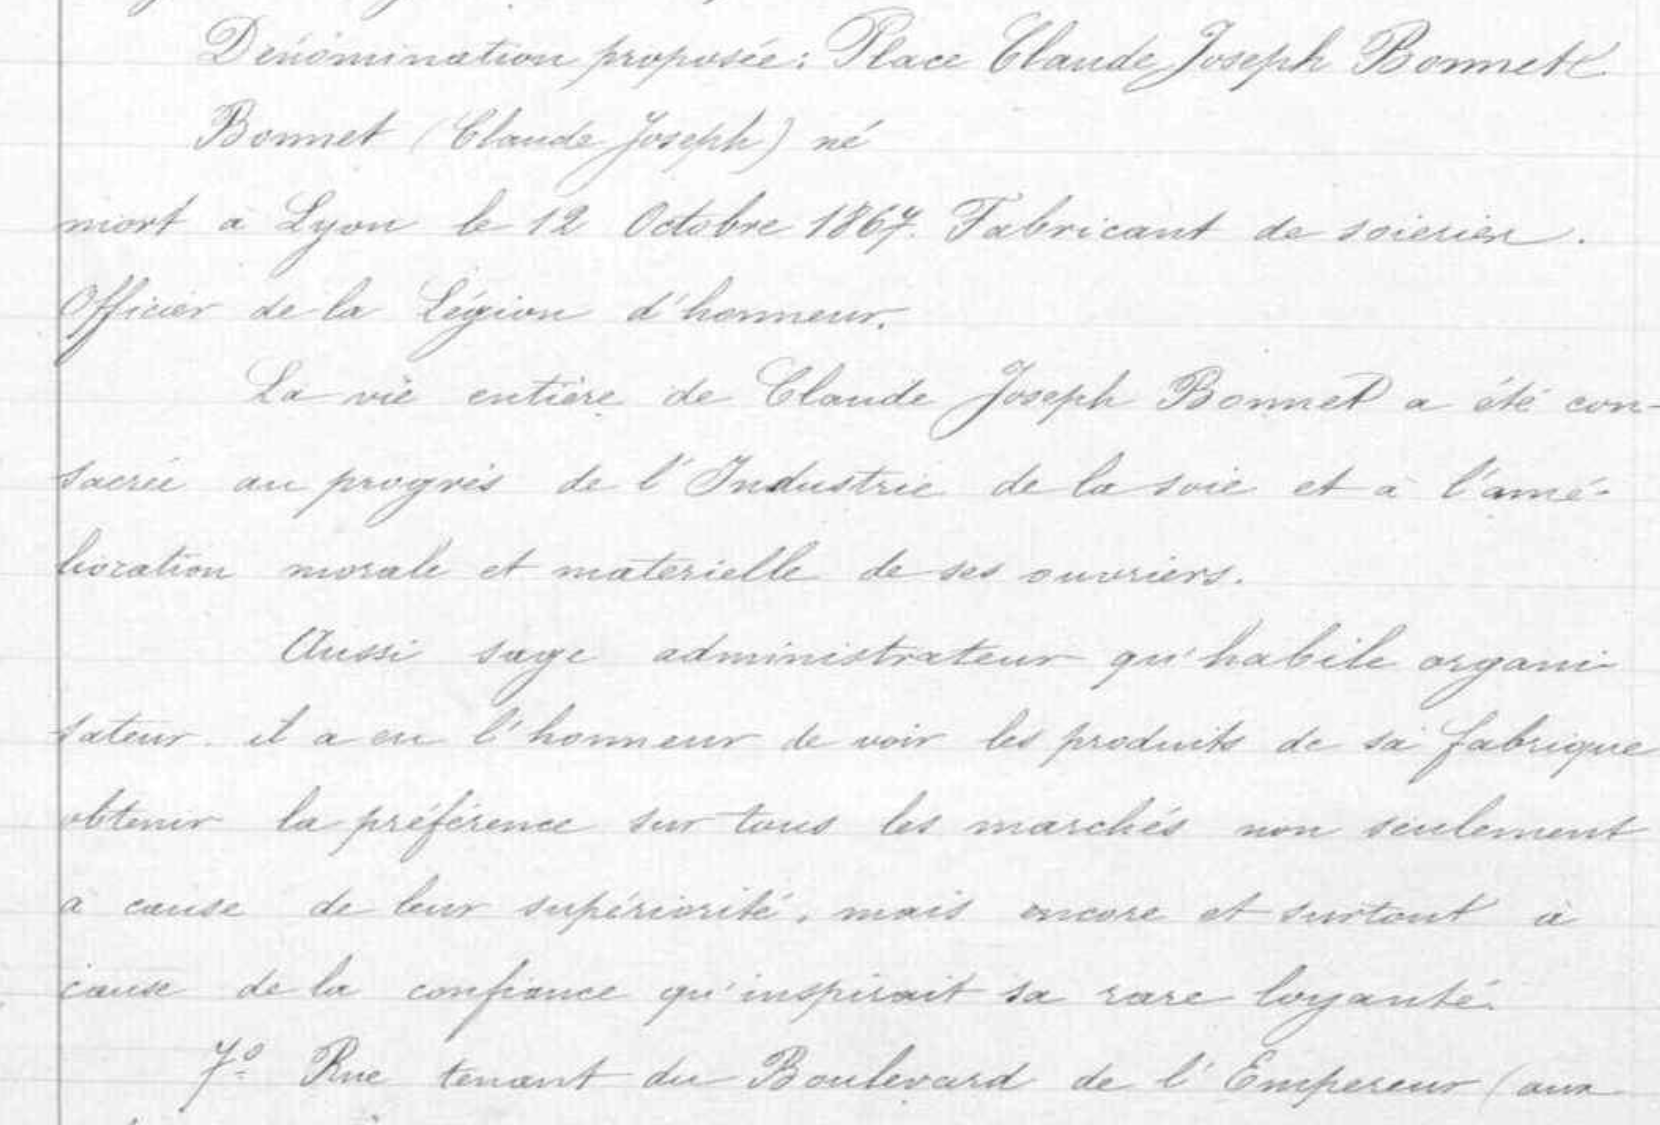 Dénomination proposée: Place Claude Joseph Bonnet
Bonnet (Claude Joseph) né
mort à Lyon le 12 Octobre 1867. Fabricant de soieries.
Officier de la Légion d'honneur.
La vie entière de Claude Joseph Bonnet a été con-
sacrée au progrès de l'Industrie de la soie et à l'amé-
lioration morale et matérielle de ses ouvriers.
Aussi sage administrateur qu'habile organi-
sateur il a eu l'honneur de voir les produits de sa fabrique
obtenir la préférence sur tous les marchés non seulement
à cause de leur supériorité, mais encore et surtout à
cause de la confiance qu'inspirait sa rare loyauté.
7º Rue tenant du Boulevard de l'Empereur (aux